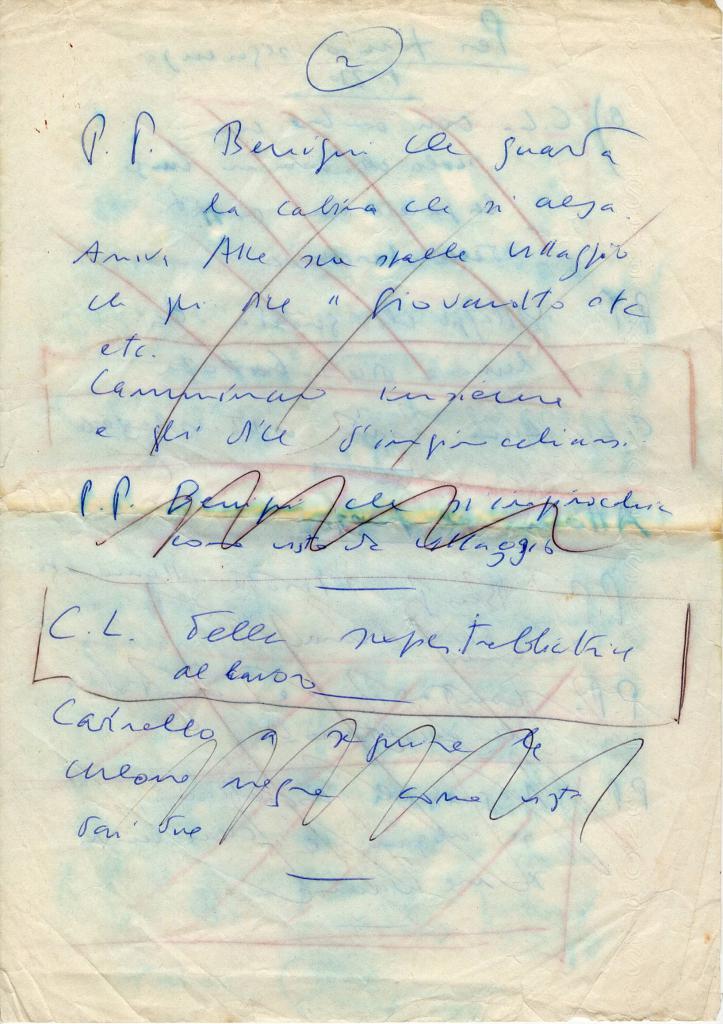 2
P.P. Benigni che guarda
la cabina che si alza.
Arriva alle sue spalle Villaggio
che gli dice "Giovanotto etc
etc.
Camminano insieme
e gli dice d'inginocchiarsi.
P.P. Benigni che si inginocchia
come visto da Villaggio
C.L. della supertrebbiatrice
al lavoro
Carrello a seguire le
negre come viste
dai due